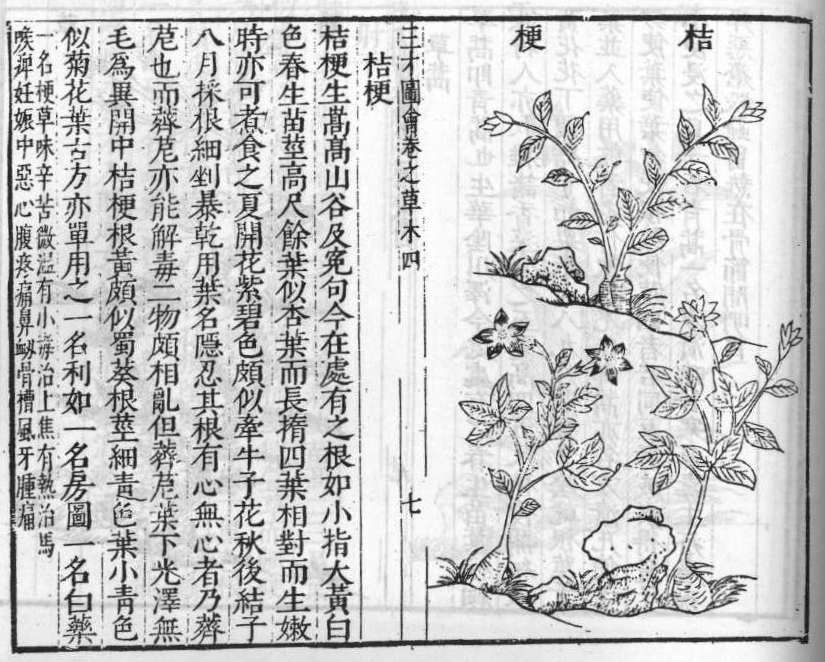 桔
梗
三才圖會卷之草木四
七
桔梗
桔梗生嵩高山谷及冤句今在處有之根如小指大黃白
色春生苗莖高尺餘葉似杏葉而長橢四葉相對而生嫩
時亦可煮食之夏開花紫碧色頗似牽牛子花秋後結子
八月採根細剉暴乾用葉名隱忍其根有心無心者乃薺
苨也而薺苨亦能解毒二物頗相亂但薺苨葉下光澤無
毛為異開中桔梗根黃頗似蜀葵根莖細青色葉小青色
似菊花葉古方亦單用之一名利如一名房圖一名白藥
一名梗草味辛苦微溫有小毒治上焦有熱治馬
喉痺妊娠中惡心腹疼痛鼻衂骨槽風牙腫痛